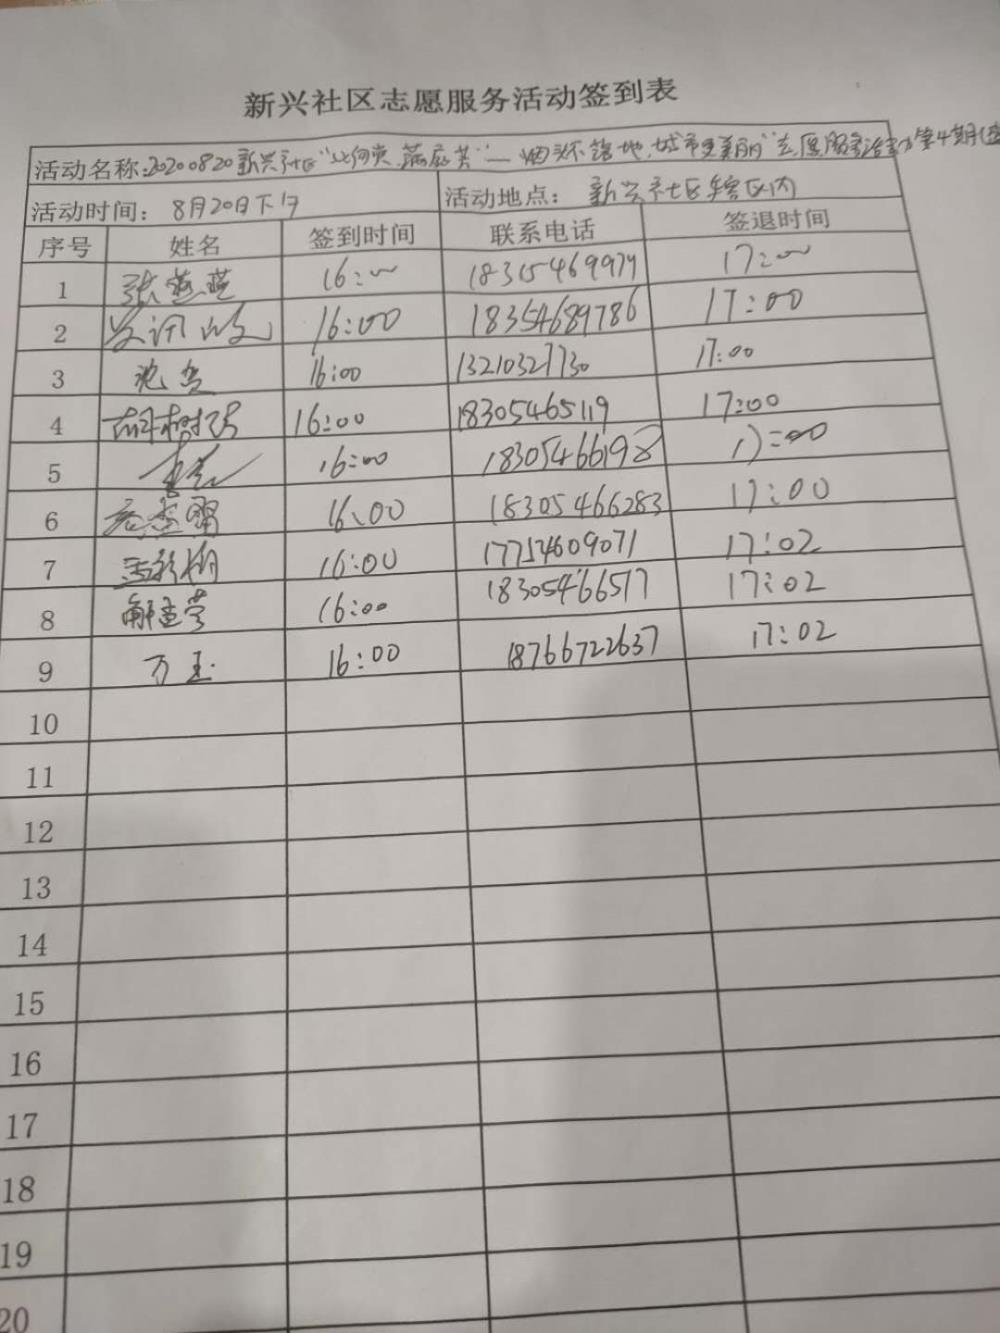 新兴社区志愿服务活动签到表
活动名称:20200820新兴社区 烟头不落地,城市更美丽"志愿服务活动第4期
活动时间: 8月20日下午 活动地点: 新兴社区辖区内
序号 姓名 签到时间 联系电话 签退时间
1 张 16:00 18315469979 17:00
2 16:00 18354689786 17:00
3 16:00 13210327730 17:00
4 胡树 16:00 18305465119 17:00
5 16:00 18305466198 17:00
6 16:00 18305466283 17:00
7 16:00 17754609071 17:02
8 解 16:00 18305466517 17:02
9 万玉 16:00 18766722637 17:02
10
11
12
13
14
15
16
17
18
19
20